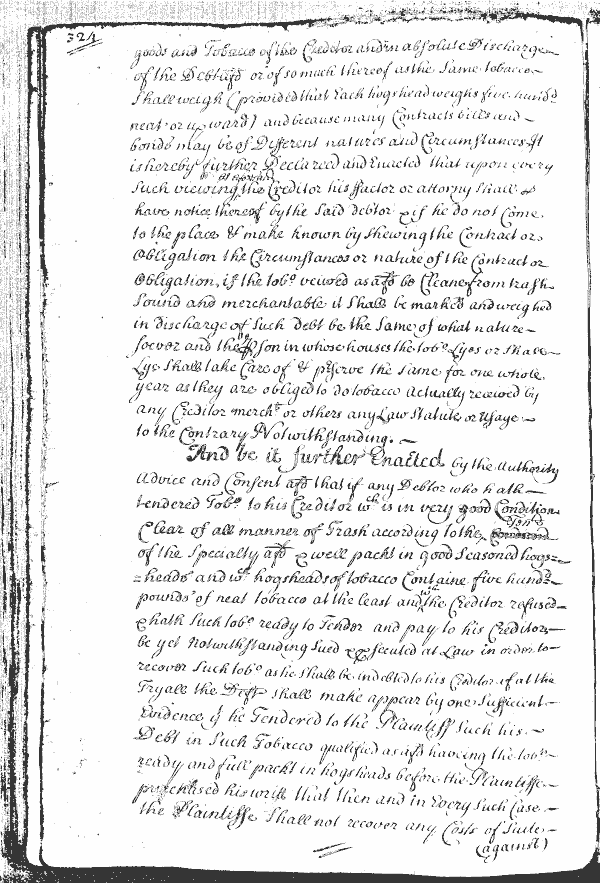 324
goods and Tobacco of the Creditor and in absolute Discharge
of the Debt afsd or of so much thereof as the Same tobacco
Shall weigh (provided that Each hogshead weighs five hundd
neat or upward) and because many Contracts bills and
bonds may be of Different natures and Circumstances It
is hereby further Declared and Enacted that upon every
Such viewing the Creditor his ffactor or attorny Shall
have notice thereof by the Said debtor & if he do not Come
to the place & make known by Shewing the Contract or
Obligation the Circumstances or nature of the Contract or
Obligation, if the tobo veiwed as afsd be Cleane from trash
Sound and merchantable it Shall be marked and weighed
in discharge of Such debt be the Same of what nature
soever and the pson in whose houses the tobo Lyes or Shall
Lye Shall take Care of & pserve the Same for one whole
year as they are obliged to do tobacco actually received by
any Creditor mercht or others any Law Statute or Usage
to the Contrary Notwithstanding.
And be it further Enacted by the Authority
Advice and Consent afsd that if any Debtor who hath
tendered Tobo to his Creditor wch is in very good Condition
Clear of all manner of Trash according to the
of the Specialty afsd & well packt in good Seasoned hogs=
=heads and wch hogsheads of tobacco Containe five hundd
pounds of neat tobacco at the least and the Creditor refused
& hath Such tobo ready to Tender and pay to his Creditor
be yet Notwithstanding Sued & psecuted at Law in order to
recover Such tobo as he Shall be indebted to his Creditor if at the
Tryall the Deft shall make appear by one Sufficient
Evidence yt he Tendered to the Plaintiff Such his
Debt in Such Tobacco qualified as afsd haveing the tobo
ready and full packt in hogsheads before the Plaintiffe
purchased his writt that then and in Every Such Case
the Plaintiffe Shall not recover any Costs of Suite
(against)